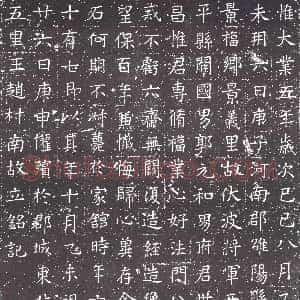 惟大業五年歲次己巳八月
未朔六日庚子河南郡雒陽
景福鄉景義里故伏波將軍
平縣開國男郭元和男府君
昌惟君專脩福業心好法門
戒不虧六齋無闕復造經造
望保百年兼懺悔歸心冀存
石何期不終薨於家館時年
十有七即以其年十月乙未朔
廿六日庚申權殯於郡城東
五里王趙村南故立銘記